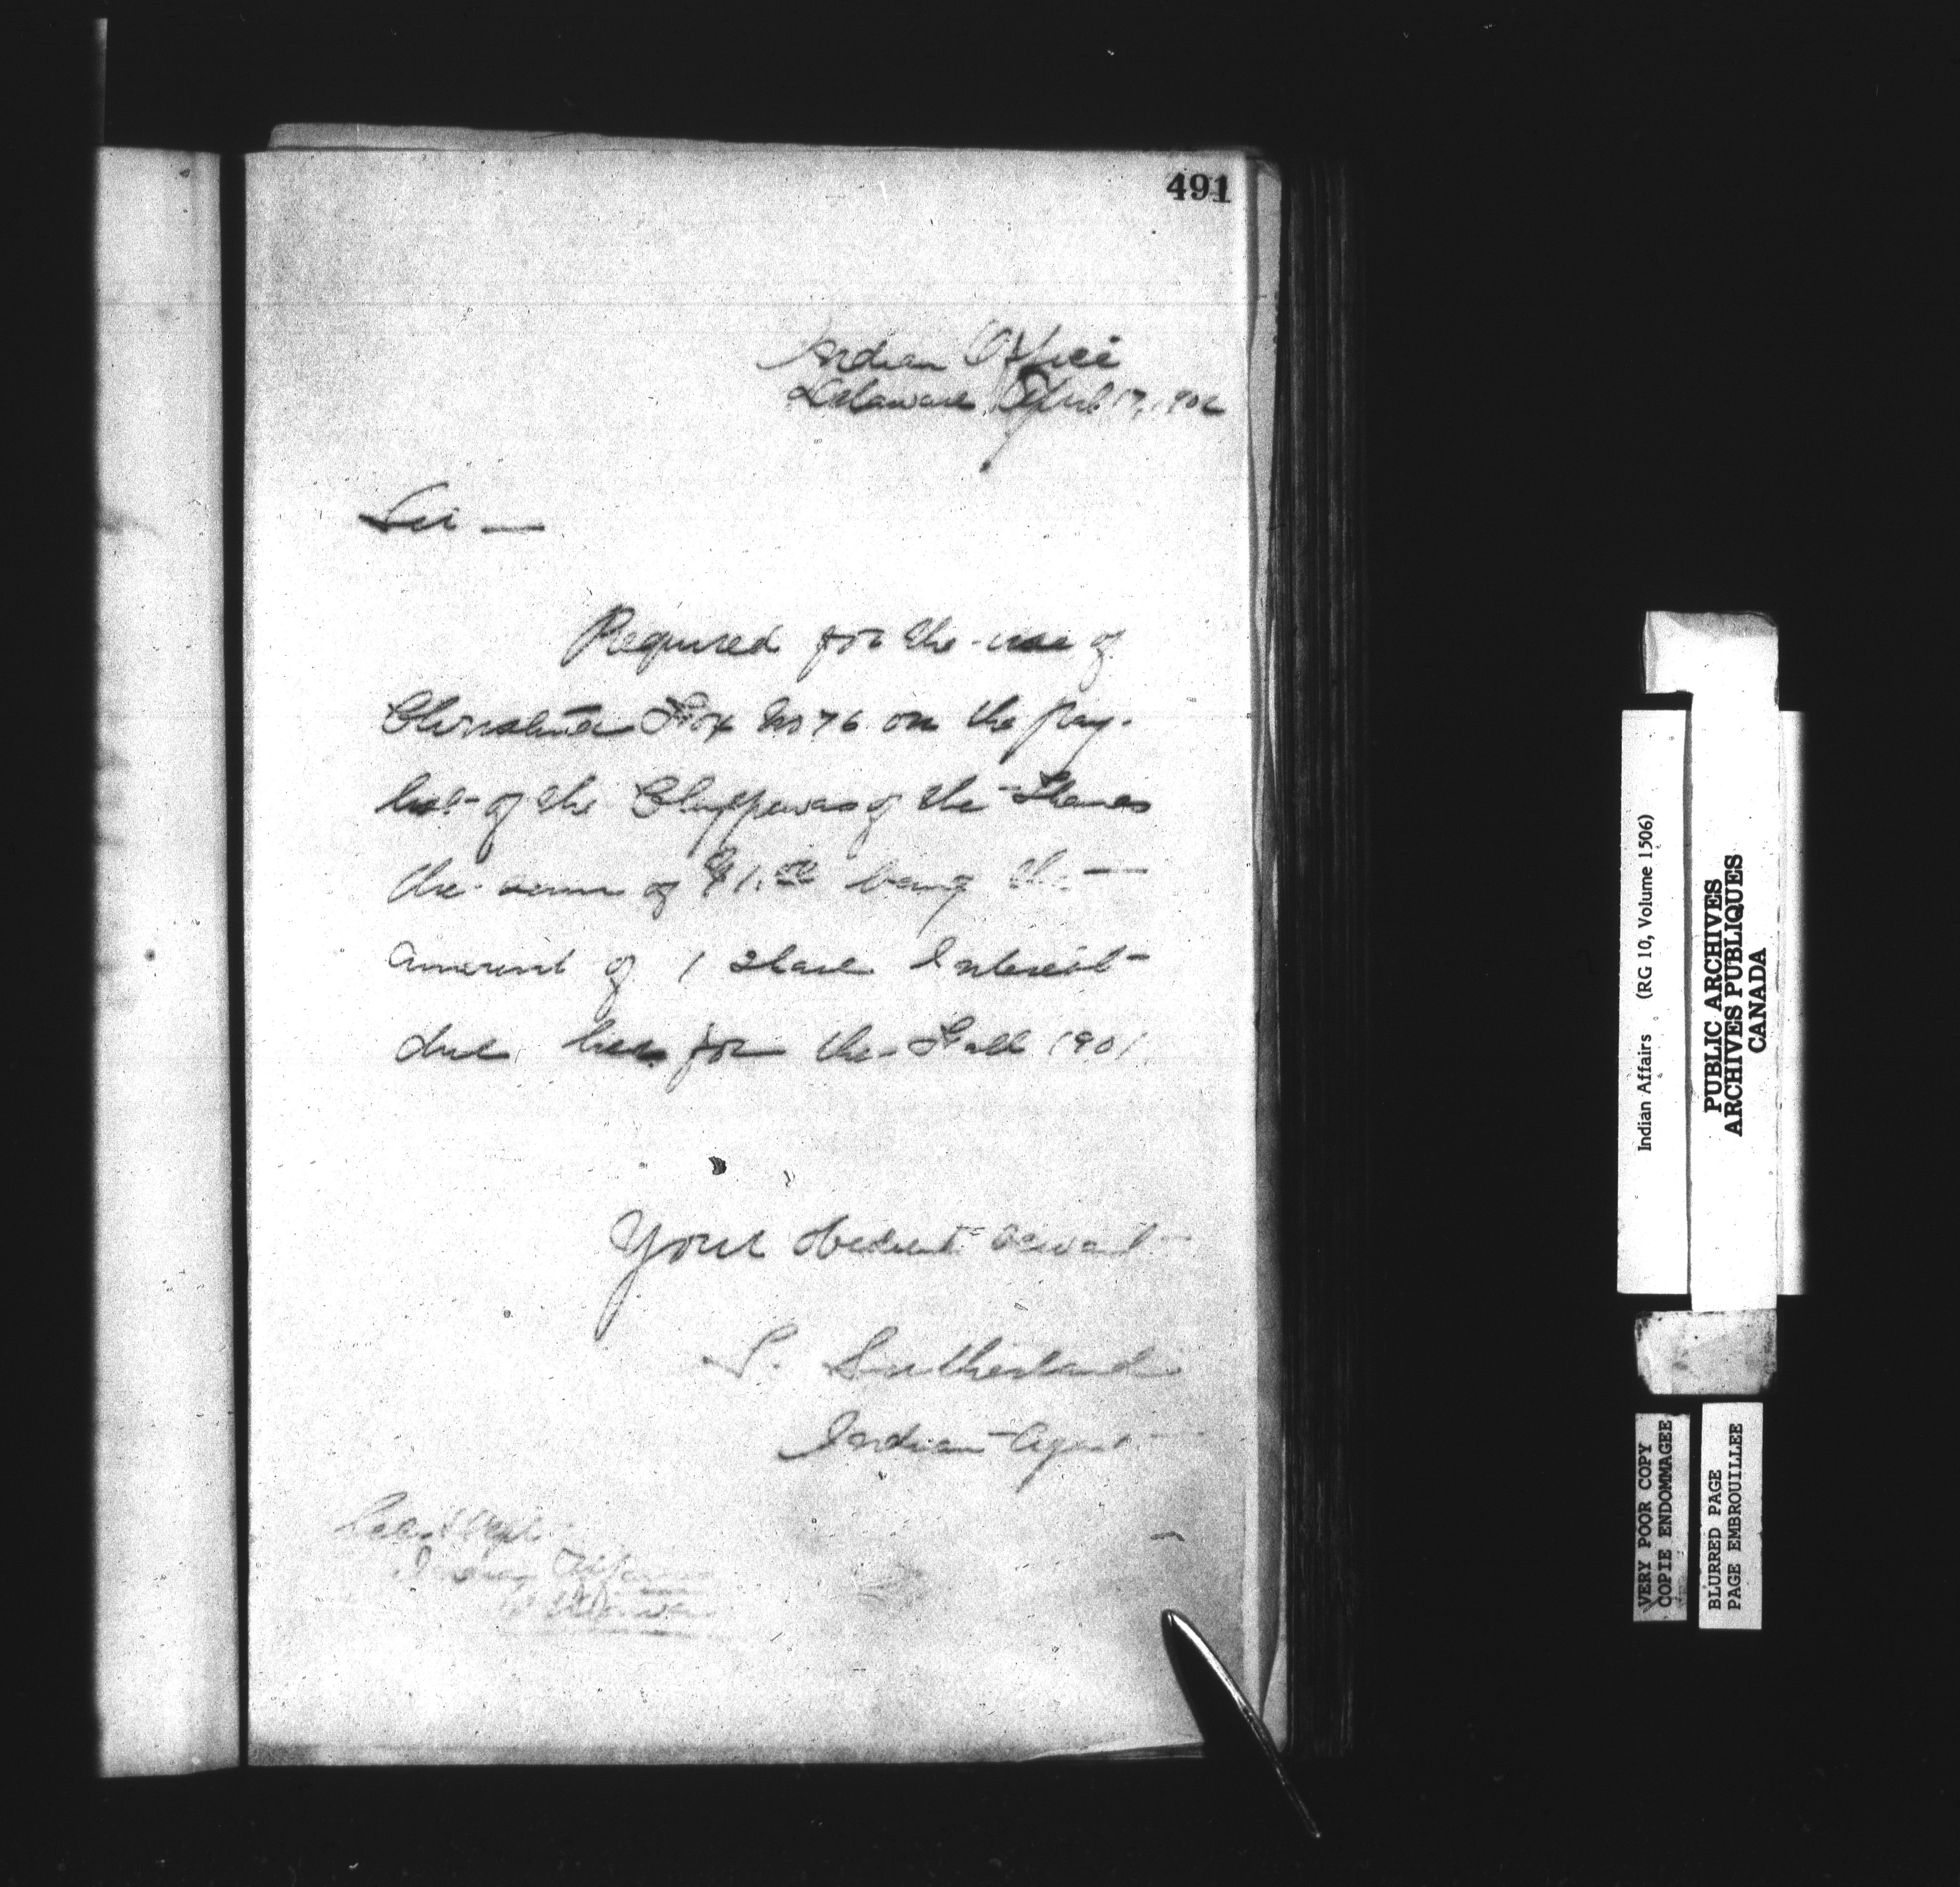 491
Indian Office
Delaware April 17, 1902
Sir —
Required for the use of
Christina Fox No 76 on the pay-
list of the Chippewas of the Thames
the sum of $1.00 being the —
amount of 1 share Interest
due her for the Fall 1901
Your obedient servant
S. Sutherland
Indian Agent
Dept
Indian Affairs
Ottawa
Indian Affairs (RG 10, Volume 1506)
PUBLIC ARCHIVES
ARCHIVES PUBLIQUES
CANADA
VERY POOR COPY
COPIE ENDOMMAGEE
BLURRED PAGE
PAGE EMBROUILLEE